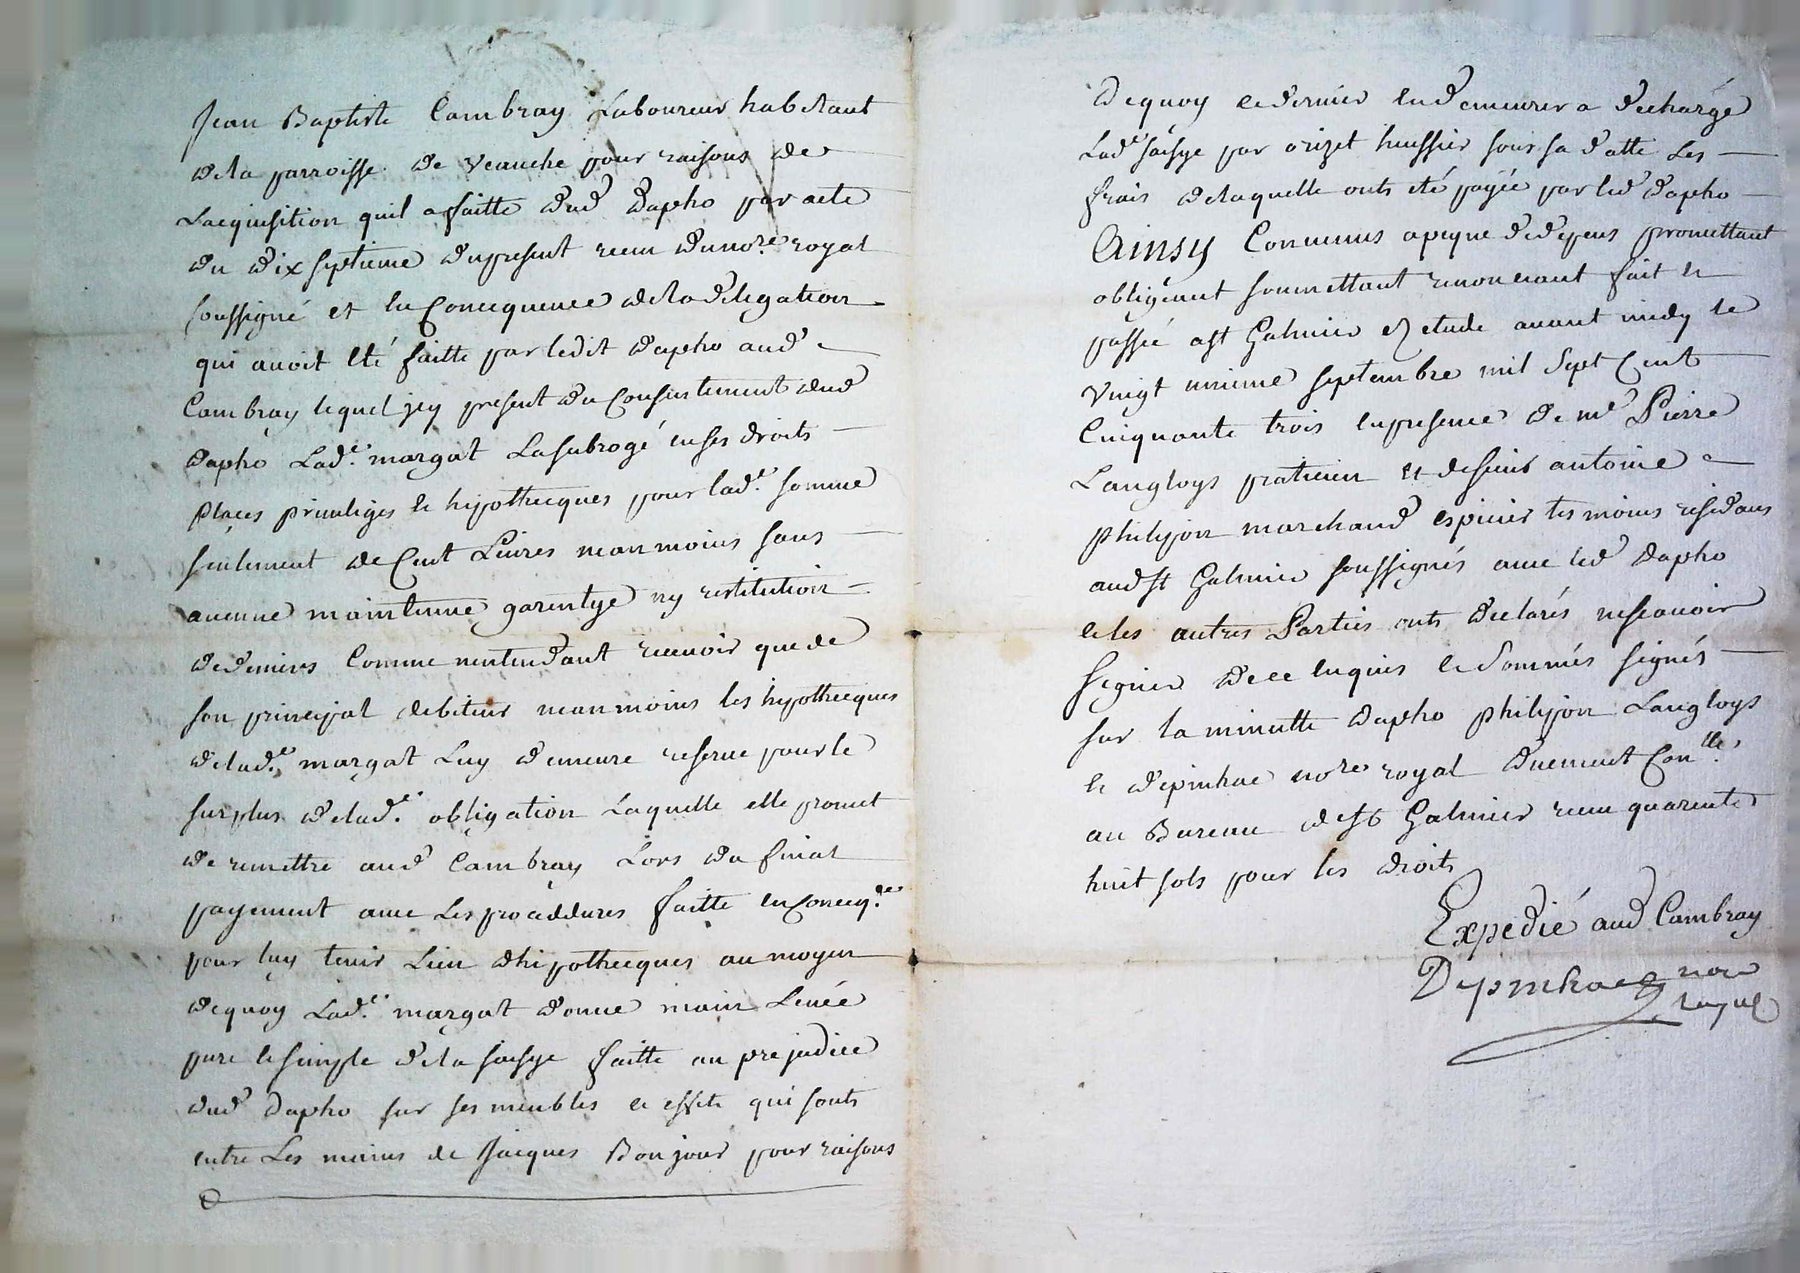 Jean Baptiste Cambray Laboureur habitant
de la parroisse de Veauche pour raisons de
Lacquisition quil a faitte dud dapho par acte
du dix septieme du present receu du no.re royal
soussigné et en Concequence de la delegation
qui avoit eté faitte par ledit dapho aud
Cambray lequel jcy present du Consentement dud
dapho Lad.e margat La subrogé en ses droits
places privileges et hipothecques pour lad.e somme
seulement de Cent Livres neanmoins sans
aucune maintenue garentye ny restitution
de deniers Comme nentendant recevoir que de
son principal debiteur neanmoins les hipothecques
de lad.e margat Luy demeure reservé pour le
surplus de lad.e obligation Laquelle elle promet
de remettre aud Cambray Lors du final
payement avec Les proceddures faitte en Conceq.ce
pour luy tenir Lieu dhipothecques au moyen
de quoy Lad.e margat donne main Levée
pure et simple de la saisye faitte au prejudice
dud dapho sur ses meubles et effets qui sonts
entre Les mains de Jacques Bonjour pour raisons
de quoy ce dernier en demeurera decharge
Lad.e saisye par orizet huissier sous sa datte Les
frais de laquelle onts eté payée par led dapho
Ainsy Convenus a peyne de depens promettant
obligeant soumettant renonceant fait et
passé a st Galmier ez etude avant midy le
vingt unieme septembre mil sept Cent
Cinquante trois en presence de me Pierre
Langloys praticien et de sieur antoine
philipon marchand espicier tesmoins residans
aud st Galmier soussignés avec led dapho
et les autres Parties onts declarés ne scavoir
signer de ce enquis et sommés signés
sur la minutte dapho philipon Langloys
et depinhac no.re royal duement Con.lle
au Bureau de st Galmier receu quarente
huit sols pour les droits
Expedié aud Cambray
Depinhac no.re
royal